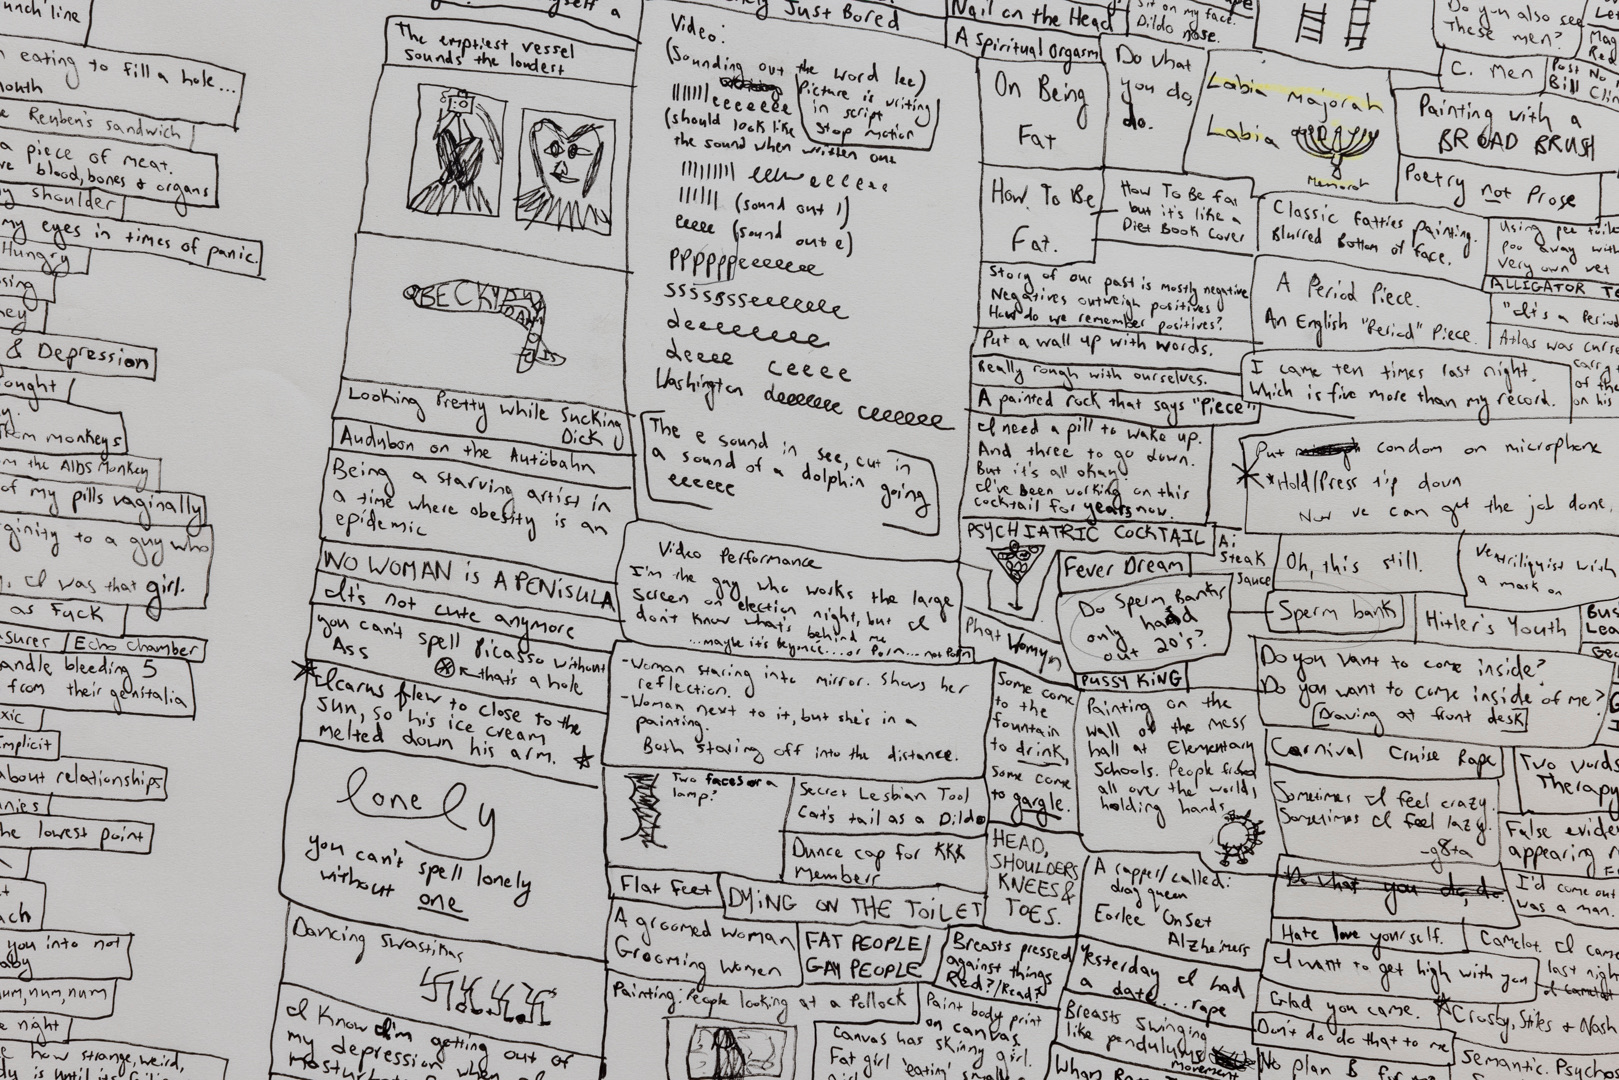 unch line
eating to fill a hole...
mouth
Reuben's sandwich
a piece of meat.
ve blood, bones & organs
my shoulder
my eyes in times of panic.
Hungry
osing
ney
& Depression
ought
from monkeys
m the AIDS Monkey
of my pills vaginally
rginity to a guy who
I was that girl.
as Fuck
asures
Echo chamber
andle bleeding 5
from their genitalia
oxic
Implicit
about relationships
nnies
he lowest point
ach
you into not
baby
num, num, num
e night
how strange, weird,
yself a
The emptiest vessel
sounds the loudest
BECKY
Looking Pretty while Sucking
Dick
Audubon on the Autöbahn
Being a starving artist in
a time where obesity is an
epidemic
NO WOMAN iS A PENiSULA
It's not cute anymore
you can't spell Picasso without
Ass
←that's a hole
Icarus flew to close to the
sun, so his ice cream
melted down his arm.
lonely
you can't spell lonely
without one
Dancing Swastikas
I know I'm getting out of
my depression when
Just Bored
Video:
(Sounding out the word lee)
Picture is writing
in script
stop motion
llllll eeeeeee
(should look like
the sound when written out
lllllllll eeeeeeeee
llllll (sound out l)
eeee (sound out e)
ppppppeeeeeee
ssssssseeeeeeee
deeeeeeee
deeee ceeee
Washington deeeeeee ceeeeeee
The e sound in see, cut in
a sound of a dolphin going
eeeeee
Video Performance
I'm the guy who works the large
screen on election night, but I
don't know what's behind me
...maybe it's Beyonce...or Porn...not Porn
-Woman staring into mirror. Shows her
reflection.
-Woman next to it, but she's in a
painting.
Both staring off into the distance.
Two faces or a
lamp?
Secret Lesbian Tool
Cat's tail as a Dildo
Dunce cap for KKK
Members
Flat Feet
DYiNG ON THE TOiLET
A groomed woman
Grooming Women
FAT PEOPLE/
GAY PEOPLE
Breasts pressed
against things
Red?/Read?
Painting: People looking at a Pollock
Paint body print
on canvas
Canvas has skinny girl.
Fat girl 'eating'
Nail on the Head
A Spiritual Orgasm
sit on my face.
Dildo nose.
On Being
Fat
Do what
you do,
do.
How To Be
Fat.
How To Be fat
but it's like a
Diet Book Cover
Story of our past is mostly negative
Negatives outweigh positives
How do we remember positives?
Put a wall up with words.
Really rough with ourselves.
A painted rock that says "Piece"
I need a pill to wake up.
And three to go down.
But it's all okay.
I've been working on this
cocktail for years now.
PSYCHiATRiC COCKTAiL
A1
Steak
Sauce
Fever Dream
Do Sperm Banks
only hand
out 20's?
Phat Womyn
PUSSY KiNG
Some come
to the
fountain
to drink,
Some come
to gargle.
Painting on the
wall of the mess
hall at Elementary
Schools. People from
all over the world,
holding hands
HEAD,
SHOULDERS
KNEES &
TOES.
A rapper/called:
drag queen
Earlee Onset
Alzheimers
Yesterday I had
a date....rape
Breasts swinging
like pendulums
movement
Labia Majorah
Labia
Menorah
Classic fatties painting.
Blurred Bottom of face.
A Period Piece.
An English "Period" Piece.
I came ten times last night,
which is five more than my record.
Put condom on microphone
*Hold/Press tip down
Now we can get the job done.
Oh, this still.
Ventriloquist with
a mask on
Sperm bank
Hitler's Youth
Do you want to come inside?
Do you want to come inside of me?
Drawing at front desk
Carnival Cruise Rape
Sometimes I feel crazy.
Sometimes I feel lazy.
Two words
Therapy
False evide
appearing r
Do what you do, do.
I'd come out
was a man.
Hate love yourself.
I want to get high with you
Camelot. I came
last nigh
Glad you came.
Crosby, Stiles & Nash
Don't do do that to me
No plan B for me
Semantic. Psychos
Do you also see
These men?
C. Men
Post No
Bill Clin
Painting with a
BROAD BRUSH
Poetry not Prose
poo away with
very own vet
ALLiGATOR TE
"It's a Period
Atlas was curse
carry t
of the
on his